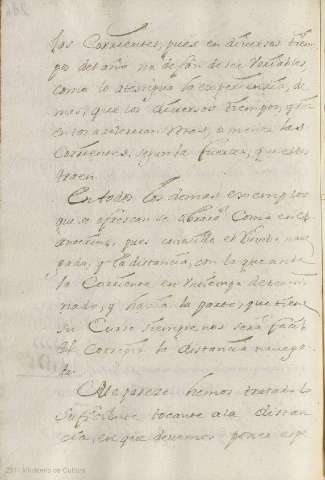 las Corrientes, pues en diversos tiem-
po del año no dejan de ser variables
como lo atestigua la experiencia, de
mas, que los diversos tiempos, que
las
Corrientes, segun la fuerza, que estos
traen.
En todos los demas exemplos
que se ofrescan se obrará como en el
antecedente, pues conocido el Rumbo nave-
gado, y la distancia, con lo que
la Corriente en tiempo determi
nado, y hacia la parte, que tiene
su Curso siempre nos será facil
el Corregir la distancia navega-
da.
Me pareze hemos tratado lo
Suffisiente tocante a la distan
cia, en que devemos poner espe
201 Ministerio de Cultura